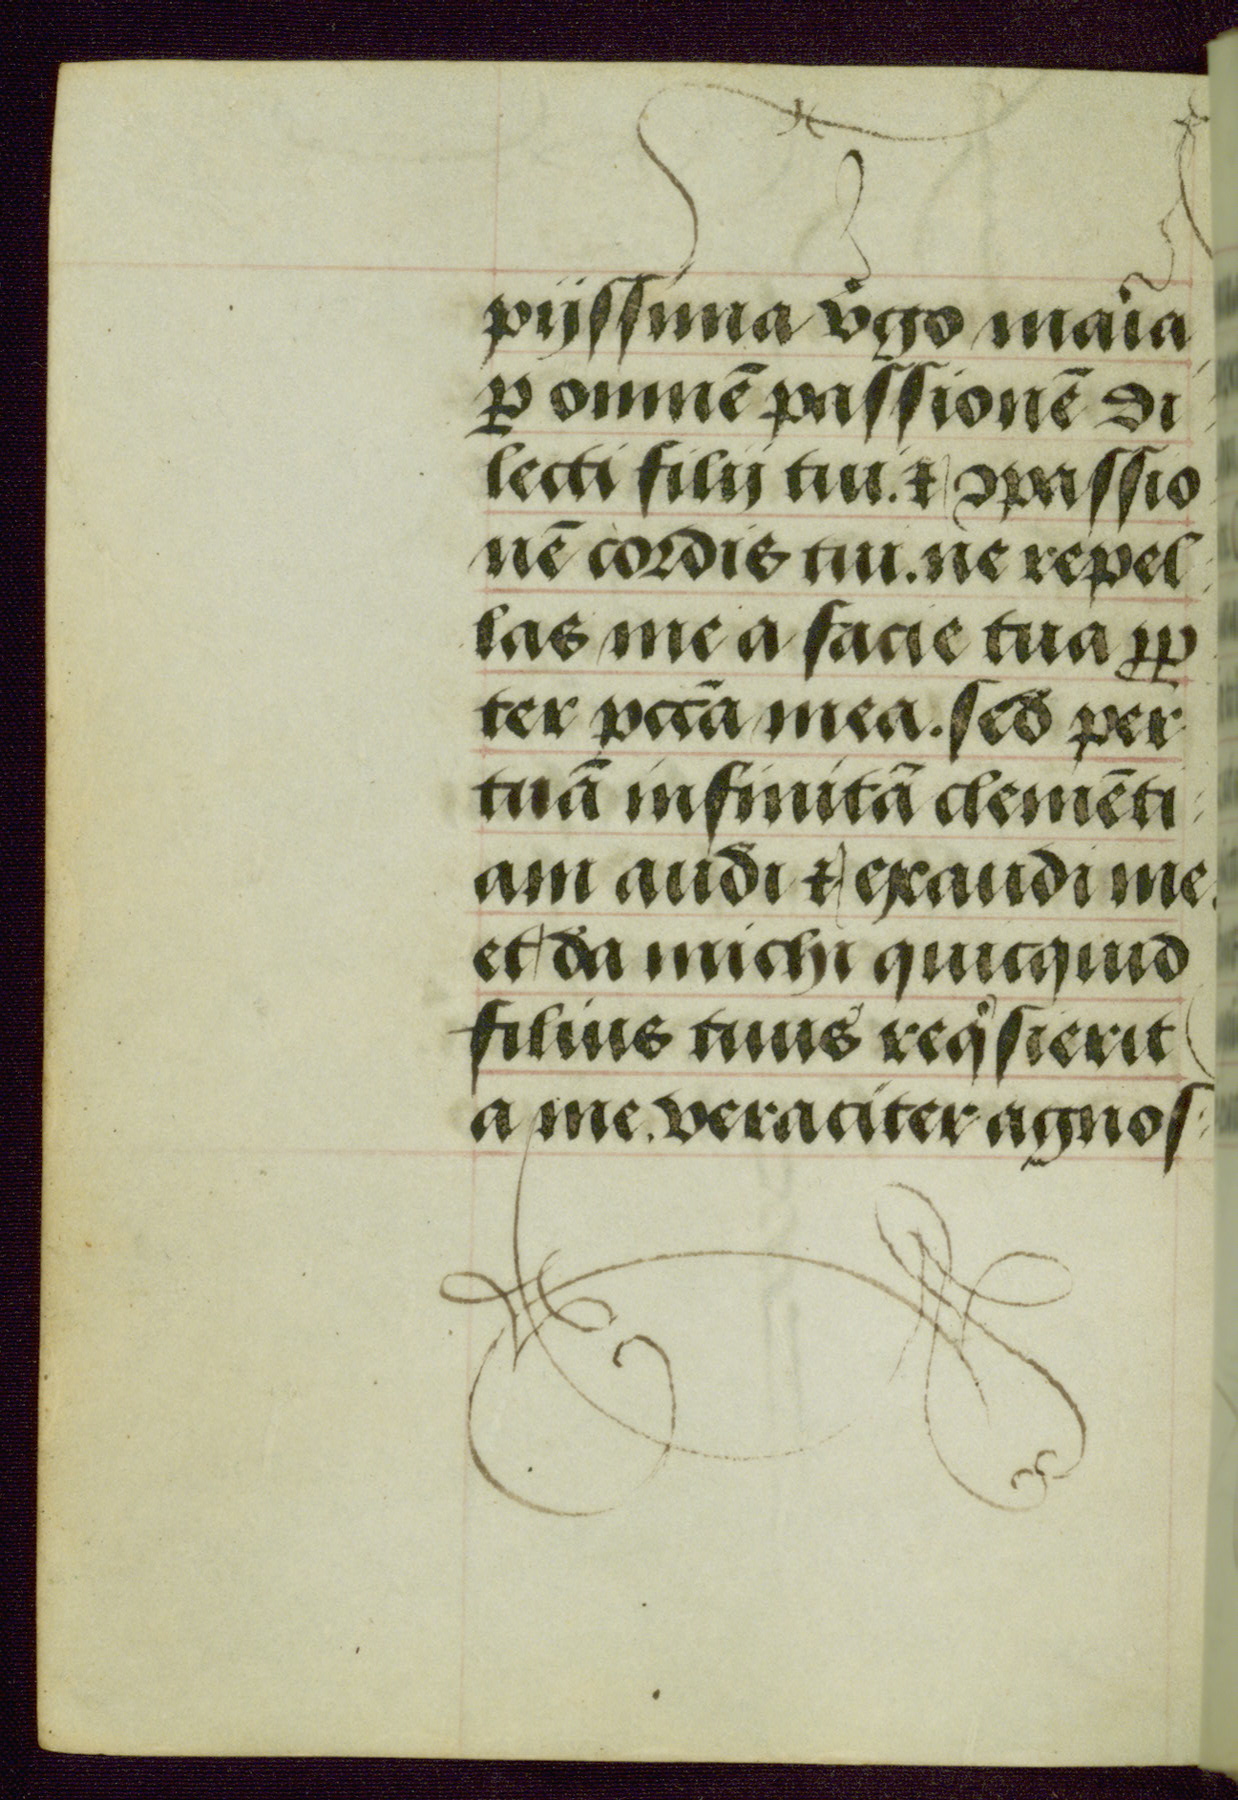 pijssima v̊go maͥia
ꝑ omnē passionē di
lecti filij tui. ⁊ ꝯpassio
nē cordis tui. ne repel
las me a facie tua ꝓp
ter pctā mea. sed per
tuā infinitā clemēti
am audi ⁊ exaudi me.
et da michi quicquid
filius tuus reqͥsierit
a me. veraciter agnos